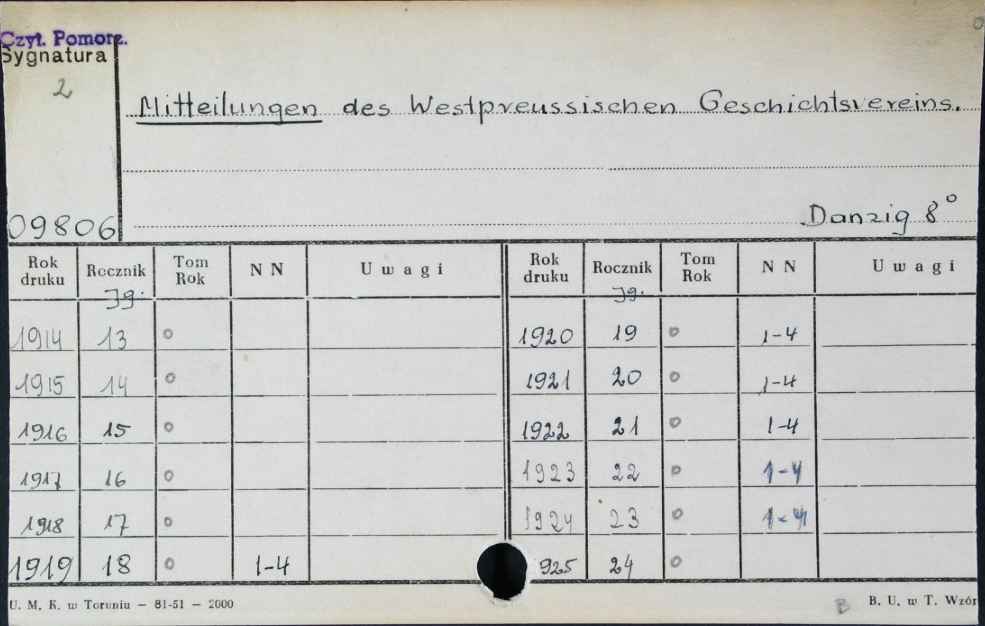 Czyt. Pomorz.
Sygnatura
2
Mitteilungen des Westpreussischen Geschichtsvereins.
09806
Danzig 8°
Rok druku Rocznik Tom Rok N N Uwagi Rok druku Rocznik Tom Rok N N Uwagi
Jg. Jg.
1914 13 o 1920 19 o 1-4
1915 14 o 1921 20 o 1-4
1916 15 o 1922 21 o 1-4
1917 16 o 1923 22 o 1-4
1918 17 o 1924 23 o 1-4
1919 18 o 1-4 925 24 o
U. M. K. w Toruniu — 81-51 — 2000
B
B. U. w T. Wzór